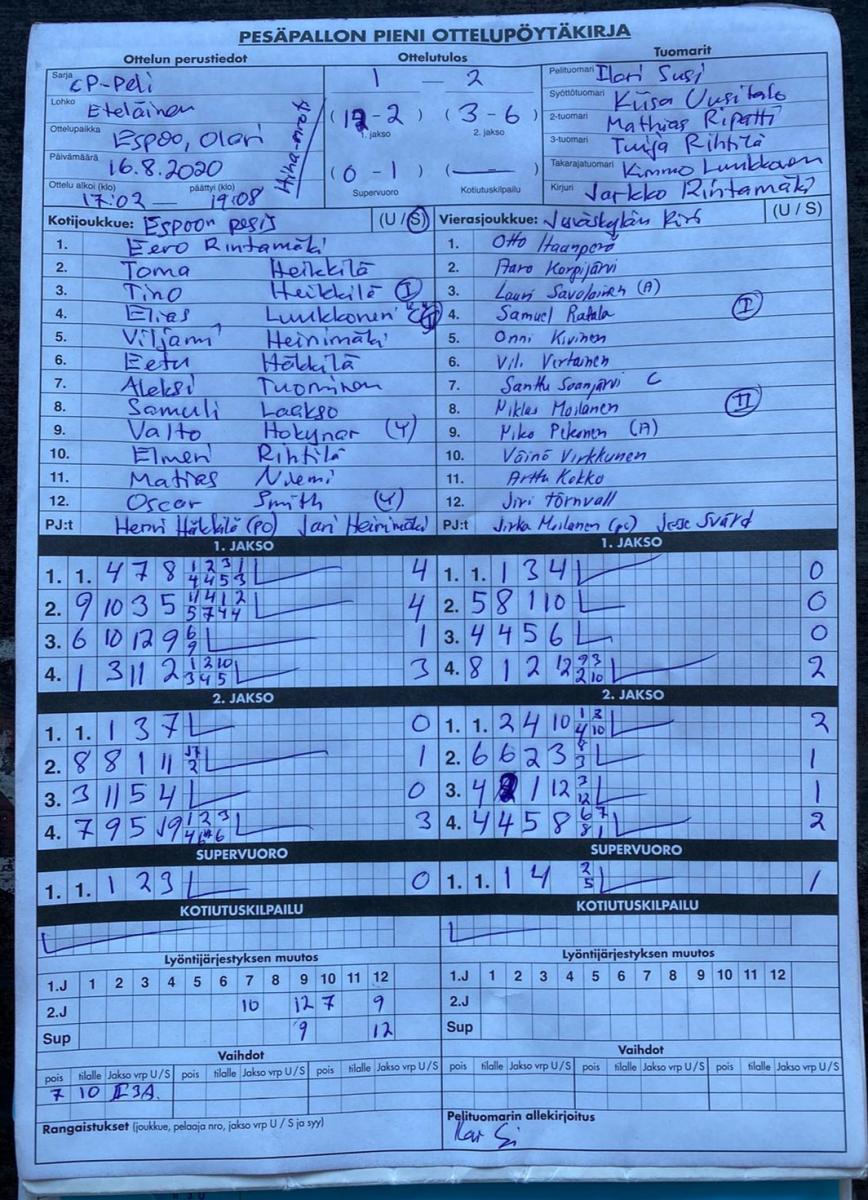 PESÄPALLON PIENI OTTELUPÖYTÄKIRJA
Ottelun perustiedot Ottelutulos Tuomarit
Sarja CP-Peli
Lohko Eteläinen
Ottelupaikka Espoo, Olari
Päivämäärä 16.8.2020
Ottelu alkoi (klo) päättyi (klo)
17:02 — 19:08
1 — 2
(12-2) (3-6)
1. jakso 2. jakso
(0-1) (—)
Supervuoro Kotiutuskilpailu
Pelituomari Ilari Susi
Syöttötuomari Kiisa Uusitalo
2-tuomari Mathias Ripatti
3-tuomari Tuija Rihtilä
Takarajatuomari Kimmo Luukkonen
Kirjuri Jarkko Rintamäki
Kotijoukkue: Espoon pesis (U / S)
1. Eero Rintamäki
2. Toma Heikkilä
3. Tino Heikkilä I
4. Elias Luukkonen
5. Viljami Heinimäki
6. Eetu Häkkilä
7. Aleksi Tuominen
8. Samuli Laakso
9. Valto Hokynar (Y)
10. Elmeri Rihtilä
11. Matias Niemi
12. Oscar Smith (Y)
PJ:t Henri Häkkilä (PC) Jari Heinimäki
Vierasjoukkue: Jyväskylän Kiri (U / S)
1. Otto Haanperä
2. Aaro Korpijärvi
3. Lauri Savolainen (A)
4. Samuel Ratala I
5. Onni Kivinen
6. Vili Virtainen
7. Santtu Svanjärvi C
8. Niklas Moilanen II
9. Niko Pekonen (A)
10. Väinö Virkkunen
11. Arttu Kokko
12. Jiri Törnvall
PJ:t Jirka Moilanen (pc) Jesse Svärd
1. JAKSO
1. 1. 4 7 8 1 2 3 1 4
4 4 5 3
2. 9 10 3 5 11 4 1 2 4
5 7 4 4
3. 6 10 12 9 6 1
9
4. 1 3 11 2 1 2 10 3
3 4 5
1. JAKSO
1. 1. 1 3 4 0
2. 5 8 1 10 0
3. 4 4 5 6 0
4. 8 1 2 12 9 3 2
2 10
2. JAKSO
1. 1. 1 3 7 0
2. 8 8 1 11 1
3. 3 11 5 4 0
4. 7 9 5 1 2 3 3
2. JAKSO
1. 1. 2 4 10 1 3 2
4 10
2. 6 6 2 3 8 1
3
3. 4 1 12 3 1
12
4. 4 4 5 8 6 7 2
8 1
SUPERVUORO
1. 1. 1 2 3 0
SUPERVUORO
1. 1. 1 4 2 1
5
KOTIUTUSKILPAILU
KOTIUTUSKILPAILU
Lyöntijärjestyksen muutos
1.J 1 2 3 4 5 6 7 8 9 10 11 12
2.J 10 12 7 9
Sup 9 12
Lyöntijärjestyksen muutos
1.J 1 2 3 4 5 6 7 8 9 10 11 12
2.J
Sup
Vaihdot
pois tilalle Jakso vrp U / S pois tilalle Jakso vrp U / S pois tilalle Jakso vrp U / S
7 10 I 3A.
Vaihdot
pois tilalle Jakso vrp U / S pois tilalle Jakso vrp U / S pois tilalle Jakso vrp U / S
Rangaistukset (joukkue, pelaaja nro, jakso vrp U / S ja syy)
Pelituomarin allekirjoitus